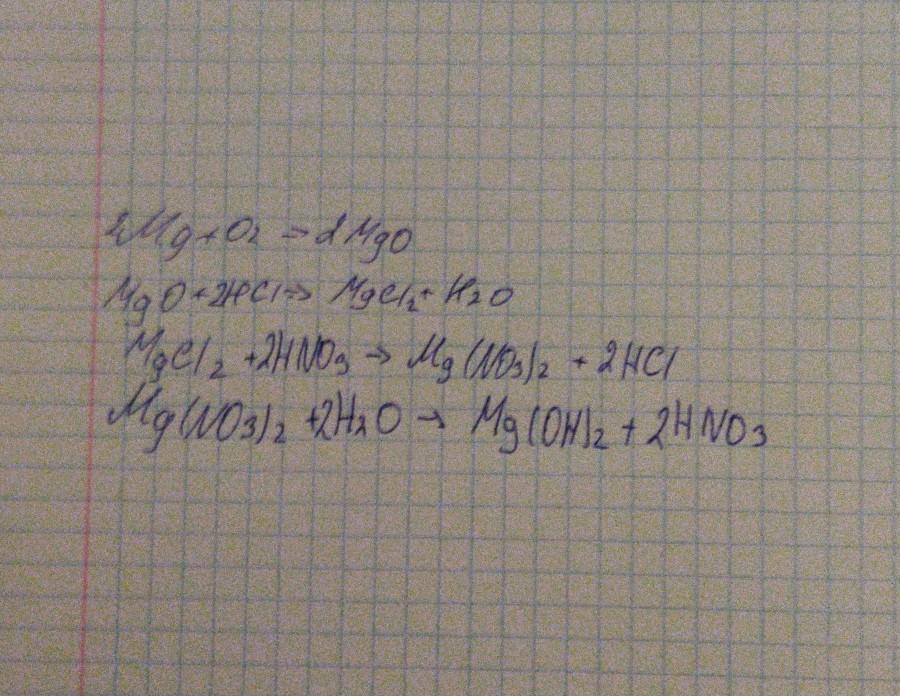 2Mg+O2 → 2MgO
MgO+2HCl → MgCl2+H2O
MgCl2 +2HNO3 → Mg(NO3)2 + 2HCl
Mg(NO3)2 +2H2O → Mg(OH)2 + 2HNO3